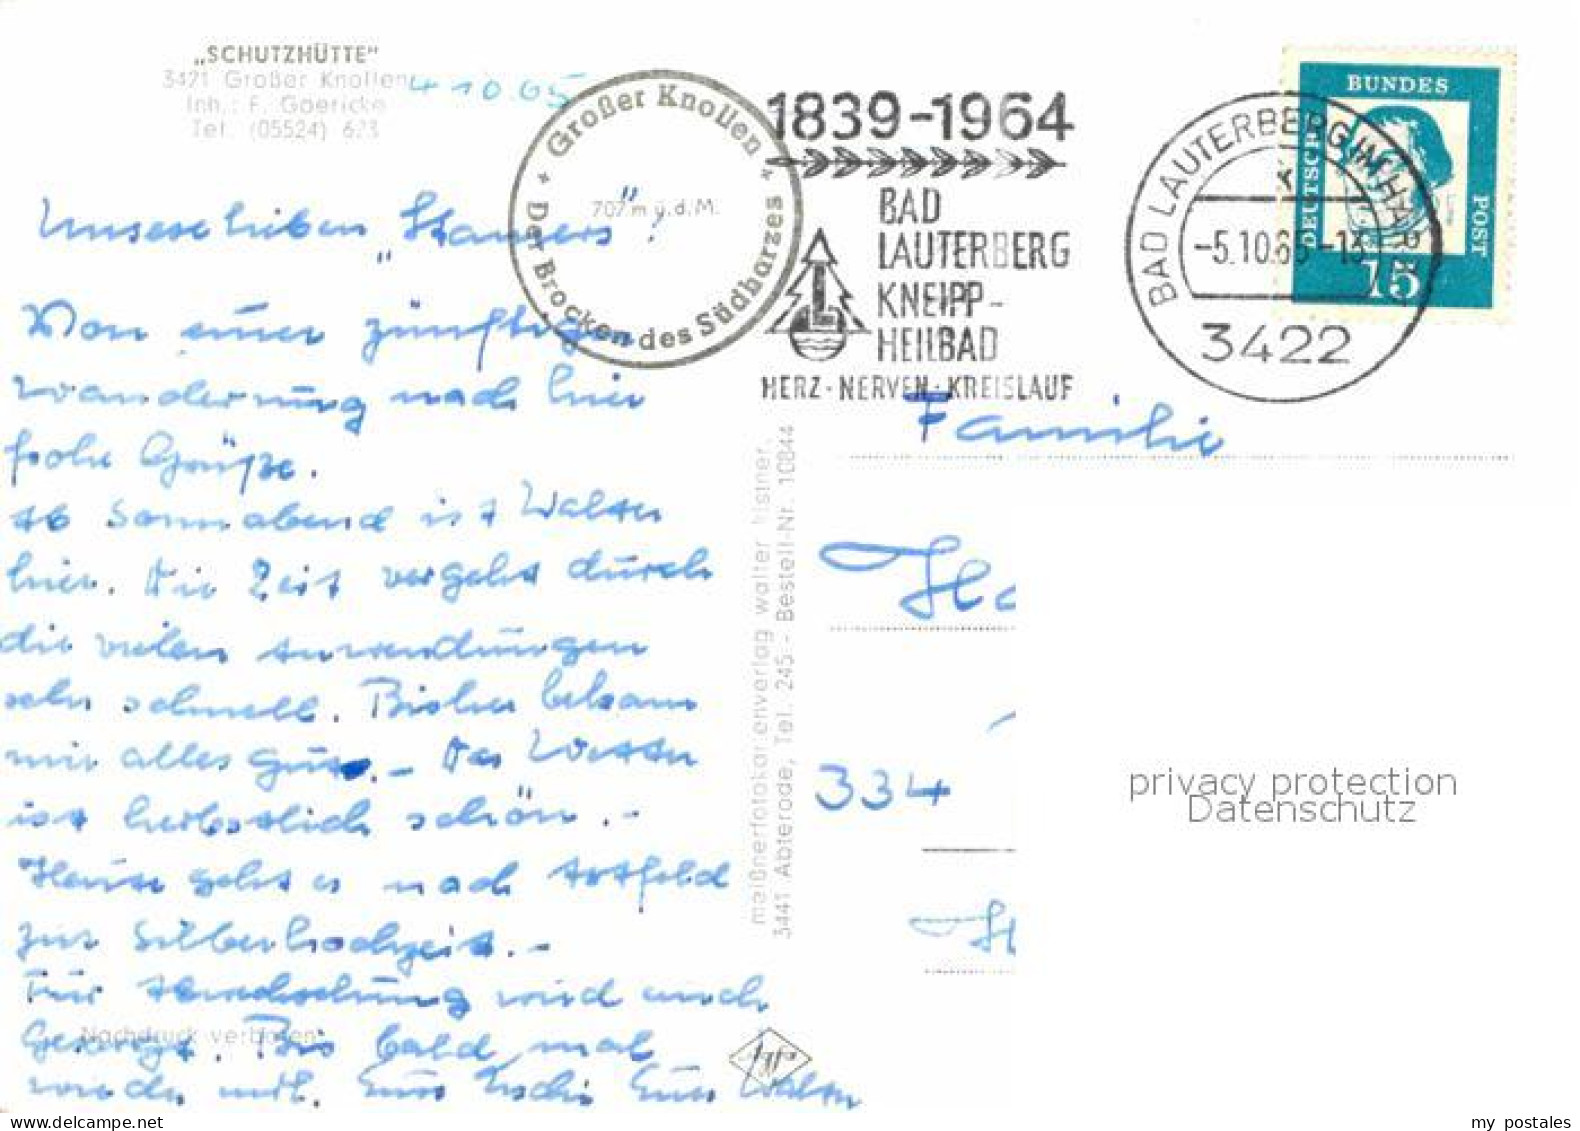 „SCHUTZHÜTTE"
3421 Großer Knollen
Inh.: F. Goericke
Tel. (05524) 623
4 10.65
Großer Knollen
707 m ü.d.M.
Der Brocken des Südharzes
1839-1964
BAD
LAUTERBERG
KNEIPP-
HEILBAD
HERZ·NERVEN·KREISLAUF
BAD LAUTERBERG IM HARZ
-5.10.65-13
3422
DEUTSCHE BUNDES POST
15
Unsere lieben
Von einer zünftigen
Wanderung nach hier
frohe Grüße.
Ab Sonnabend ist Walter
hier. Die Zeit vergeht durch
die vielen Anwendungen
sehr schnell. Bisher bekam
mir alles gut. – Das Wetter
ist herbstlich schön. –
Heute geht es nach
zur Silberhochzeit. –
Für Abwechslung wird auch
gesorgt. Bis bald mal
wieder mit. Eure Eure Walter
Nachdruck verboten
meißnerfotokartenverlag walter kistner,
3441 Abterode, Tel. 245 - Bestell-Nr. 10844
Familie
Ha
334
H
privacy protection
Datenschutz
my postales